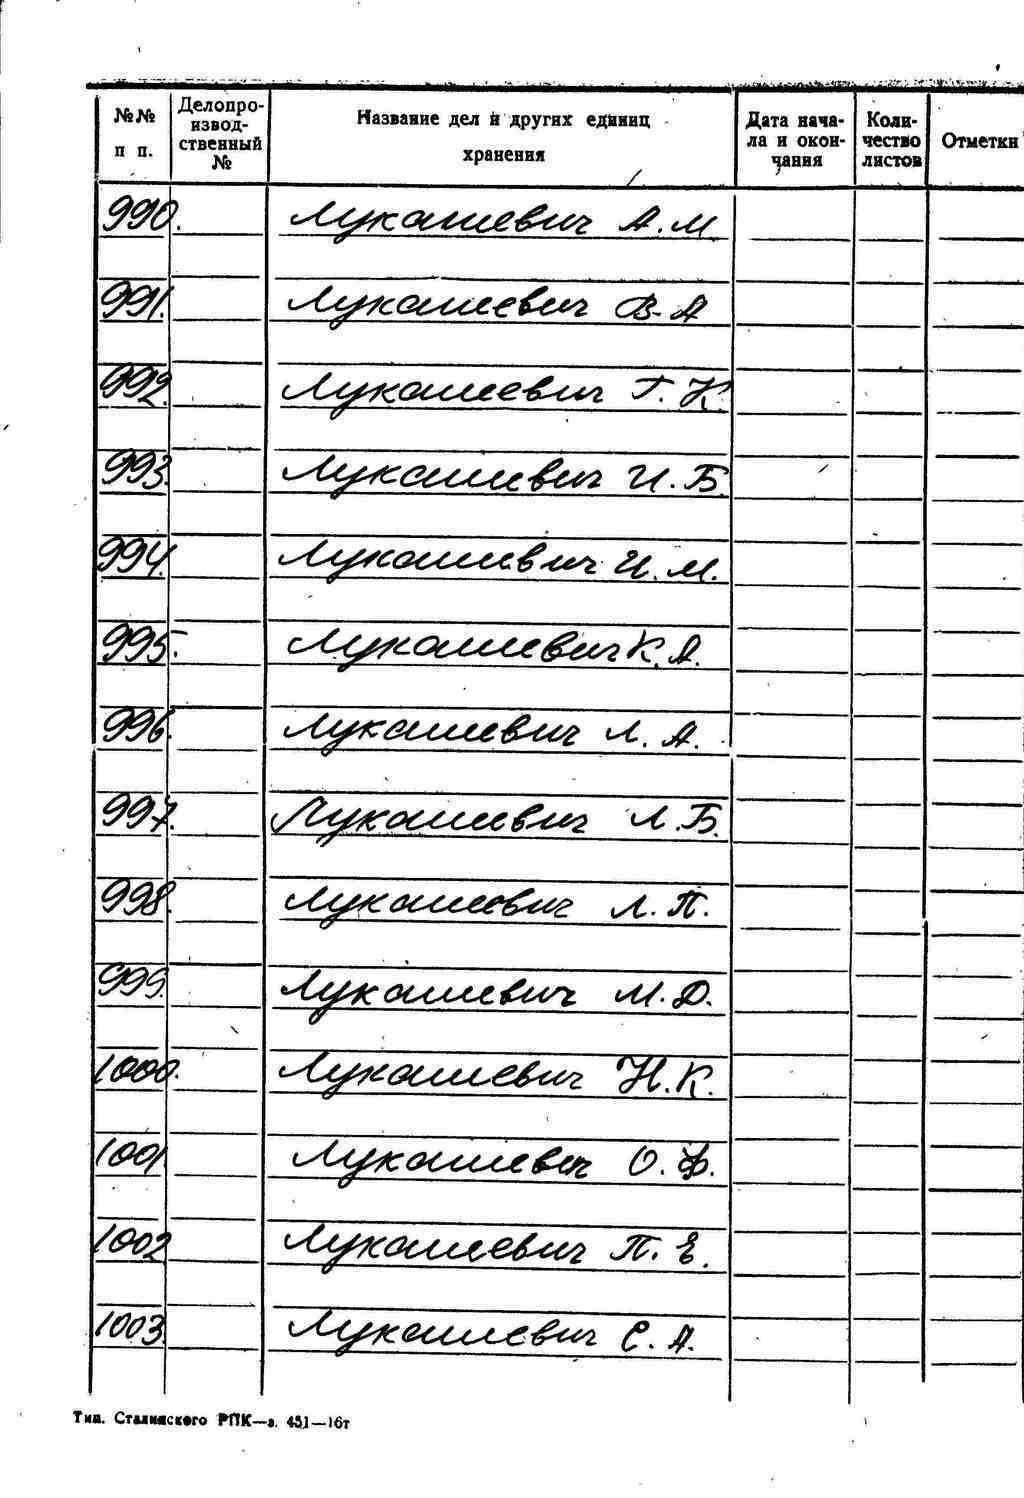 №№ п п. Делопроизводственный № Название дел и других единиц хранения Дата начала и окончания Количество листов Отметки
990. Лукашевич А. М
991. Лукашевич В. А
992. Лукашевич Г. К.
993. Лукашевич И. Б.
994. Лукашевич И. М.
995. Лукашевич К. А.
996. Лукашевич Л. А.
997. Лукашевич Л. Б.
998. Лукашевич Л. П.
999. Лукашевич М. Д.
1000. Лукашевич Н. К.
1001 Лукашевич О. Ф.
1002 Лукашевич П. Е.
1003. Лукашевич С. А.
Тип. Сталинского РПК—з. 451—16т